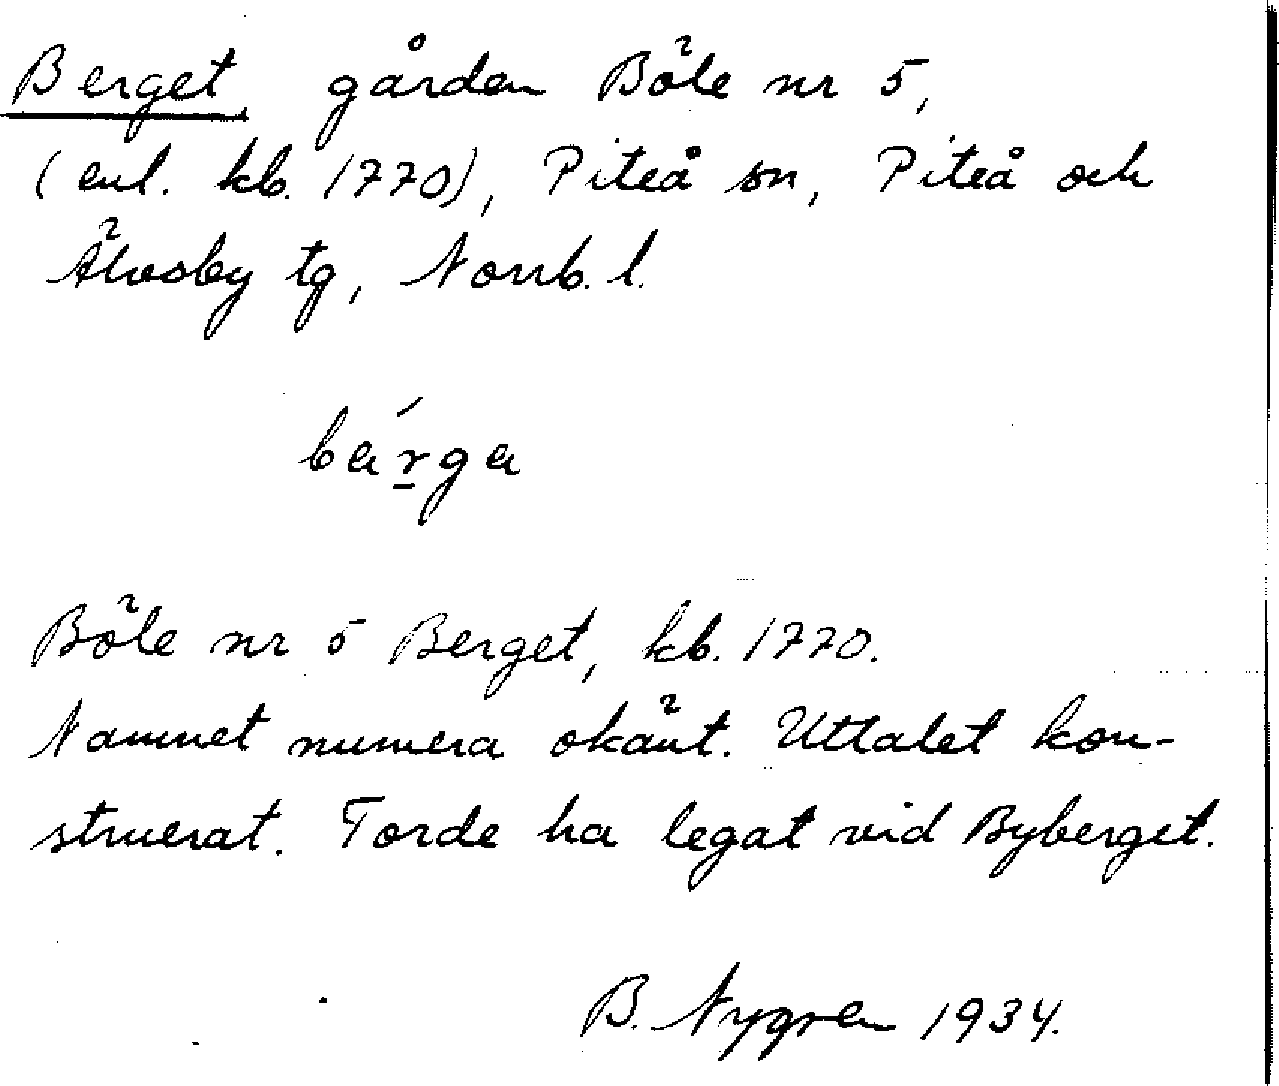 Berget, gården Böle nr 5,
(enl. kb. 1770), Piteå sn, Piteå och
Älvsby tg, Norrb. l.
bárga
Böle nr 5 Berget, kb. 1770.
Namnet numera okänt. Uttalet kon-
struerat. Torde ha legat vid Byberget.
B. Nygren 1934.